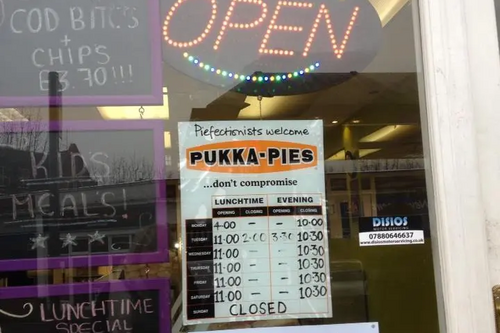 COD BITES
+
CHIPS
£3.70!!!
KIDS
MEALS!
LUNCHTIME
SPECIAL
OPEN
Piefectionists welcome
PUKKA-PIES
...don't compromise
LUNCHTIME EVENING
OPENING CLOSING OPENING CLOSING
MONDAY 4:00 — — 10:00
TUESDAY 11:00 2:00 3:30 10:30
WEDNESDAY 11:00 — — 10:30
THURSDAY 11:00 — — 10:30
FRIDAY 11:00 — — 10:30
SATURDAY 11:00 — — 10:30
SUNDAY CLOSED
DISIOS
MOTOR SERVICING
07880646637
www.disiosmotorservicing.co.uk